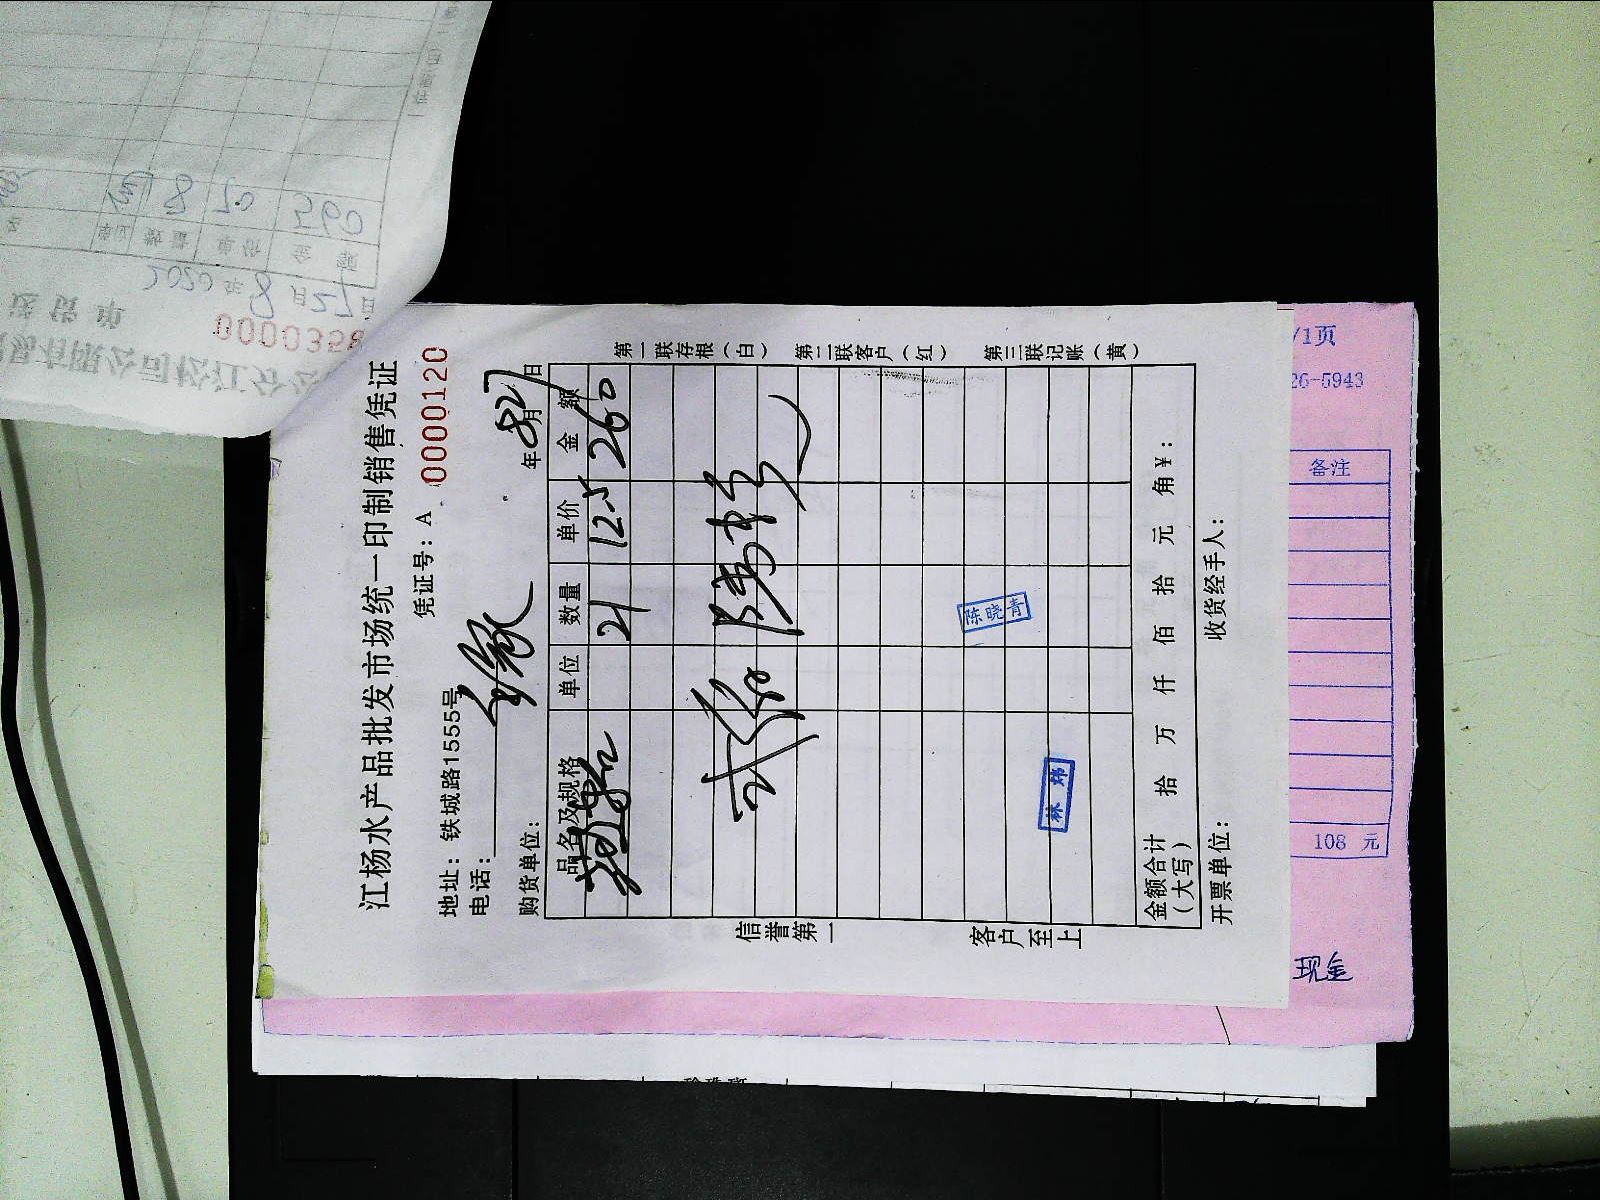 江杨水产品批发市场统一印制销售凭证
地址：铁城路1555号 凭证号：A 0000120
电话：
购货单位： 年 8月27日
品名及规格 单位 数量 单价 金额
21 12.5 260
第一联存根（白） 第二联客户（红） 第三联记账（黄）
信誉第一 客户至上
陈晓青
林炜
金额合计（大写） 拾 万 仟 佰 拾 元 角 ¥：
开票单位： 收货经手人：
/1页
26-5943
备注
108 元
现金
送货单
0000358
2020年8月27日
单位 数量 单价 金额
8 70 560